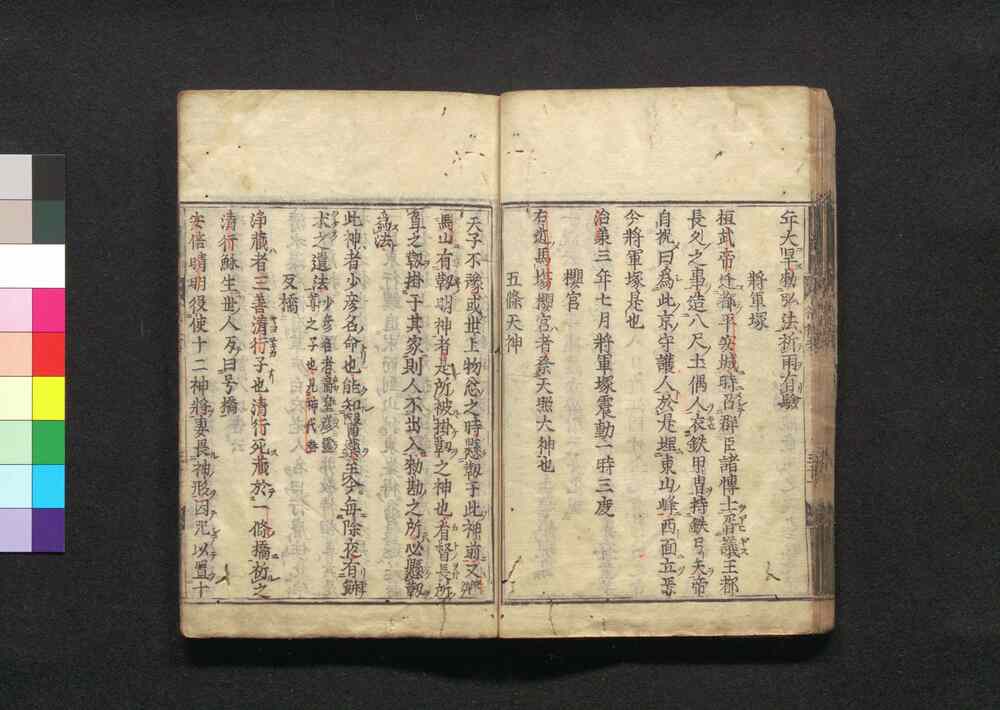 年大旱勅弘法祈雨有驗
將軍塚
桓武帝遷都平安城時召群臣諸博士胥議王都
長久之事造八尺土偶人衣鉄甲冑持鉄弓矢帝
自祝曰為此京守護人於是埋東山峰西面立焉
今將軍塚是也
治兼三年七月將軍塚震動一時三度
櫻宮
右近馬場櫻宮者祭天照大神也
五條天神
天子不豫或世上物忩之時懸靱于此神前又
馬山有靱明神者是所被掛靱之神也看督長所
負之靱掛于其家則人不出入勅勘之所必懸靱
爲法
此神者少彦名命也能知醫藥至今毎除夜有
求之遺法
尊之子也見神代巻
反橋
浄藏者三善清行子也清行死藏於一條橋祈之
清行穌生世人反曰号橋
安倍晴明役使十二神將妻畏神形因咒以置十